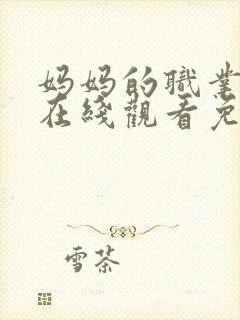 妈妈的職業
在綫觀看免
雪茶